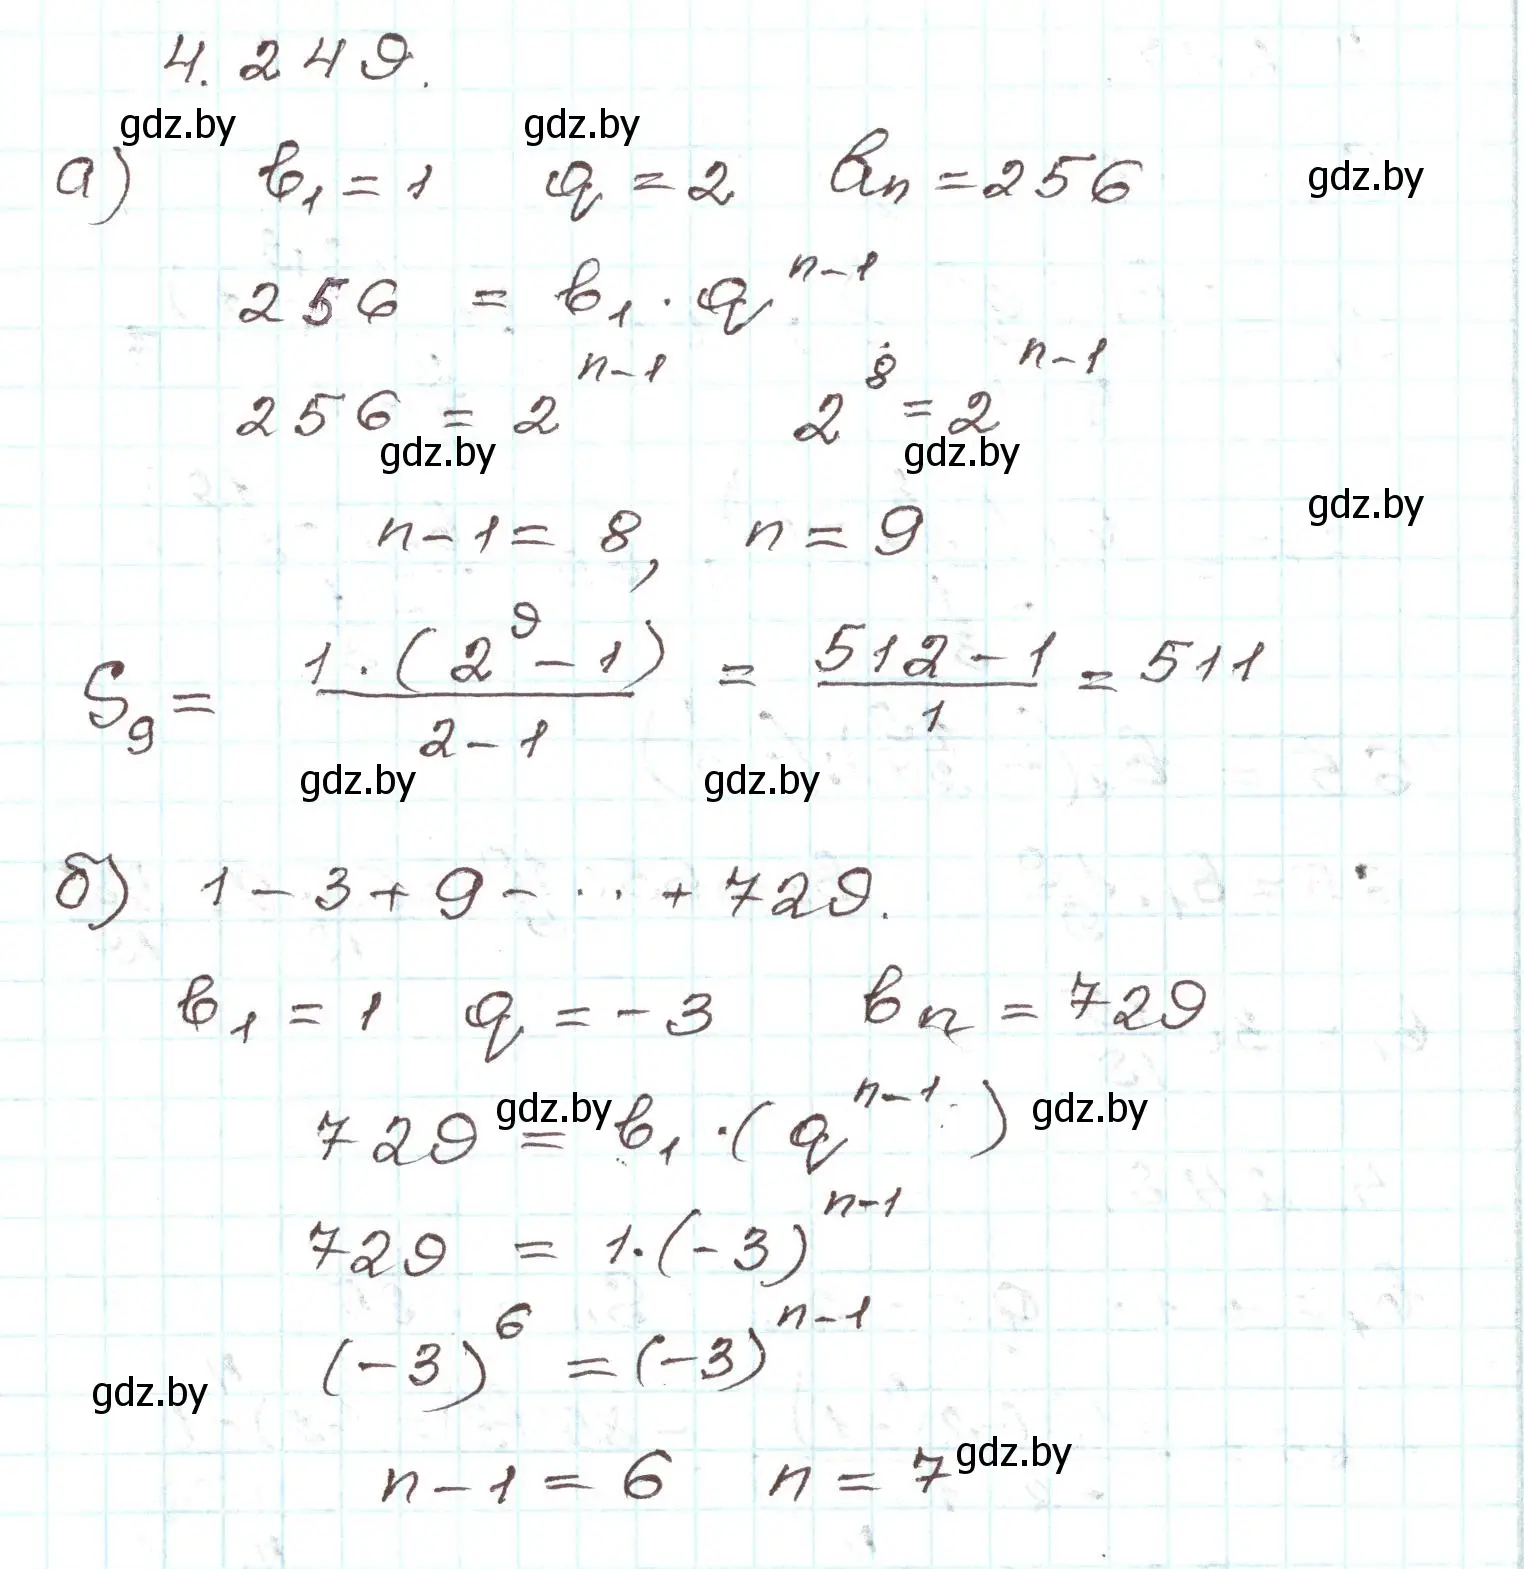 4.249.
gdz.by gdz.by
а) b₁ = 1 q = 2 bₙ = 256 gdz.by
256 = b₁ · q^(n-1)
256 = 2^(n-1) 2^8 = 2^(n-1)
gdz.by gdz.by
n-1 = 8, n = 9 gdz.by
S₉ = 1·(2^9 - 1) / (2-1) = (512-1) / 1 = 511
gdz.by gdz.by
б) 1 - 3 + 9 - ... + 729.
b₁ = 1 q = -3 bₙ = 729
729 = b₁ · (q^(n-1)) gdz.by gdz.by
729 = 1·(-3)^(n-1)
(-3)^6 = (-3)^(n-1)
gdz.by
n-1 = 6 n = 7 gdz.by